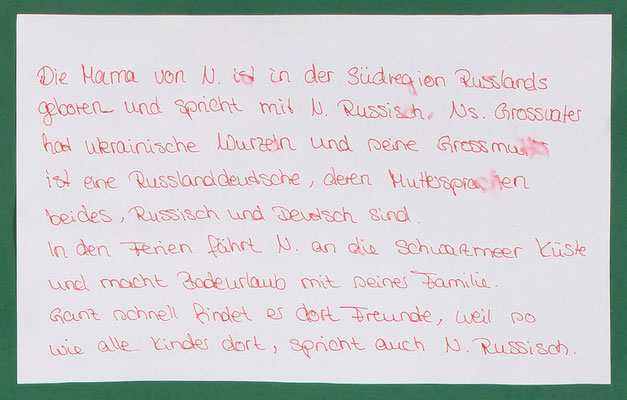 Die Mama von N. ist in der Südregion Russlands
geboren und spricht mit N. Russisch. Ns. Grossvater
hat ukrainische Wurzeln und seine Grossmutti
ist eine Russlanddeutsche, deren Muttersprachen
beides, Russisch und Deutsch sind.
In den Ferien fährt N. an die Schwarzmeer Küste
und macht Badeurlaub mit seiner Familie.
Ganz schnell findet er dort Freunde, weil so
wie alle Kinder dort, spricht auch N. Russisch.